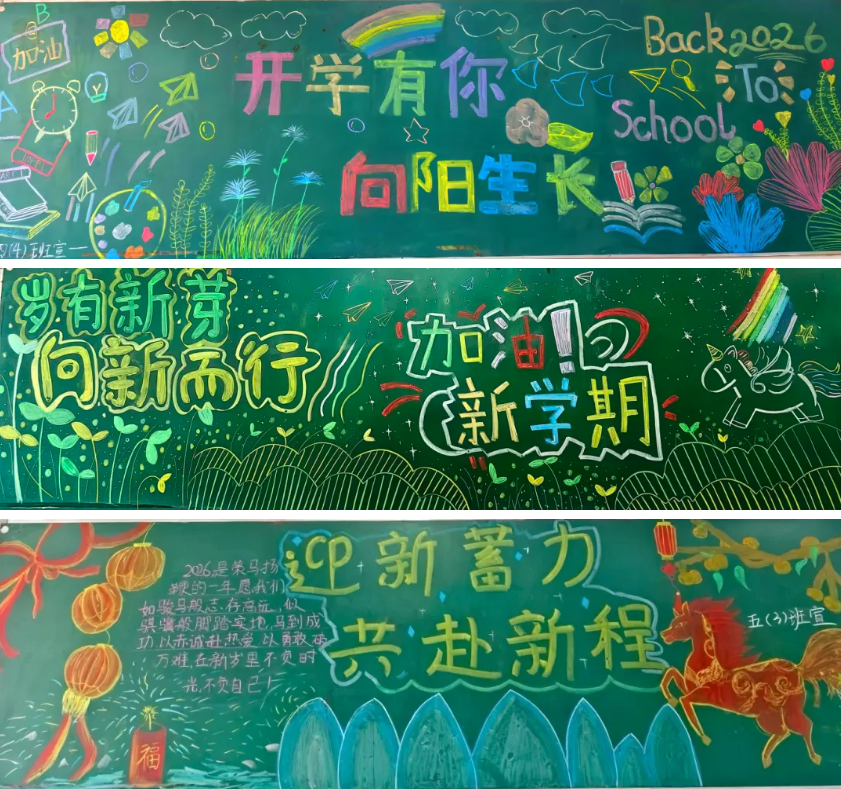 B
加油
A
开学有你
向阳生长
Back 2026
To
School
(4)班宣
岁有新芽
向新而行
加油!
新学期
2026是策马扬
鞭的一年愿我们
如骏马般志存高远,似
骐骥般脚踏实地,马到成
功,以赤诚赴热爱,以勇敢破
万难,在新岁里不负时
光,不负自己!
迎新蓄力
共赴新程
五(3)班宣
福